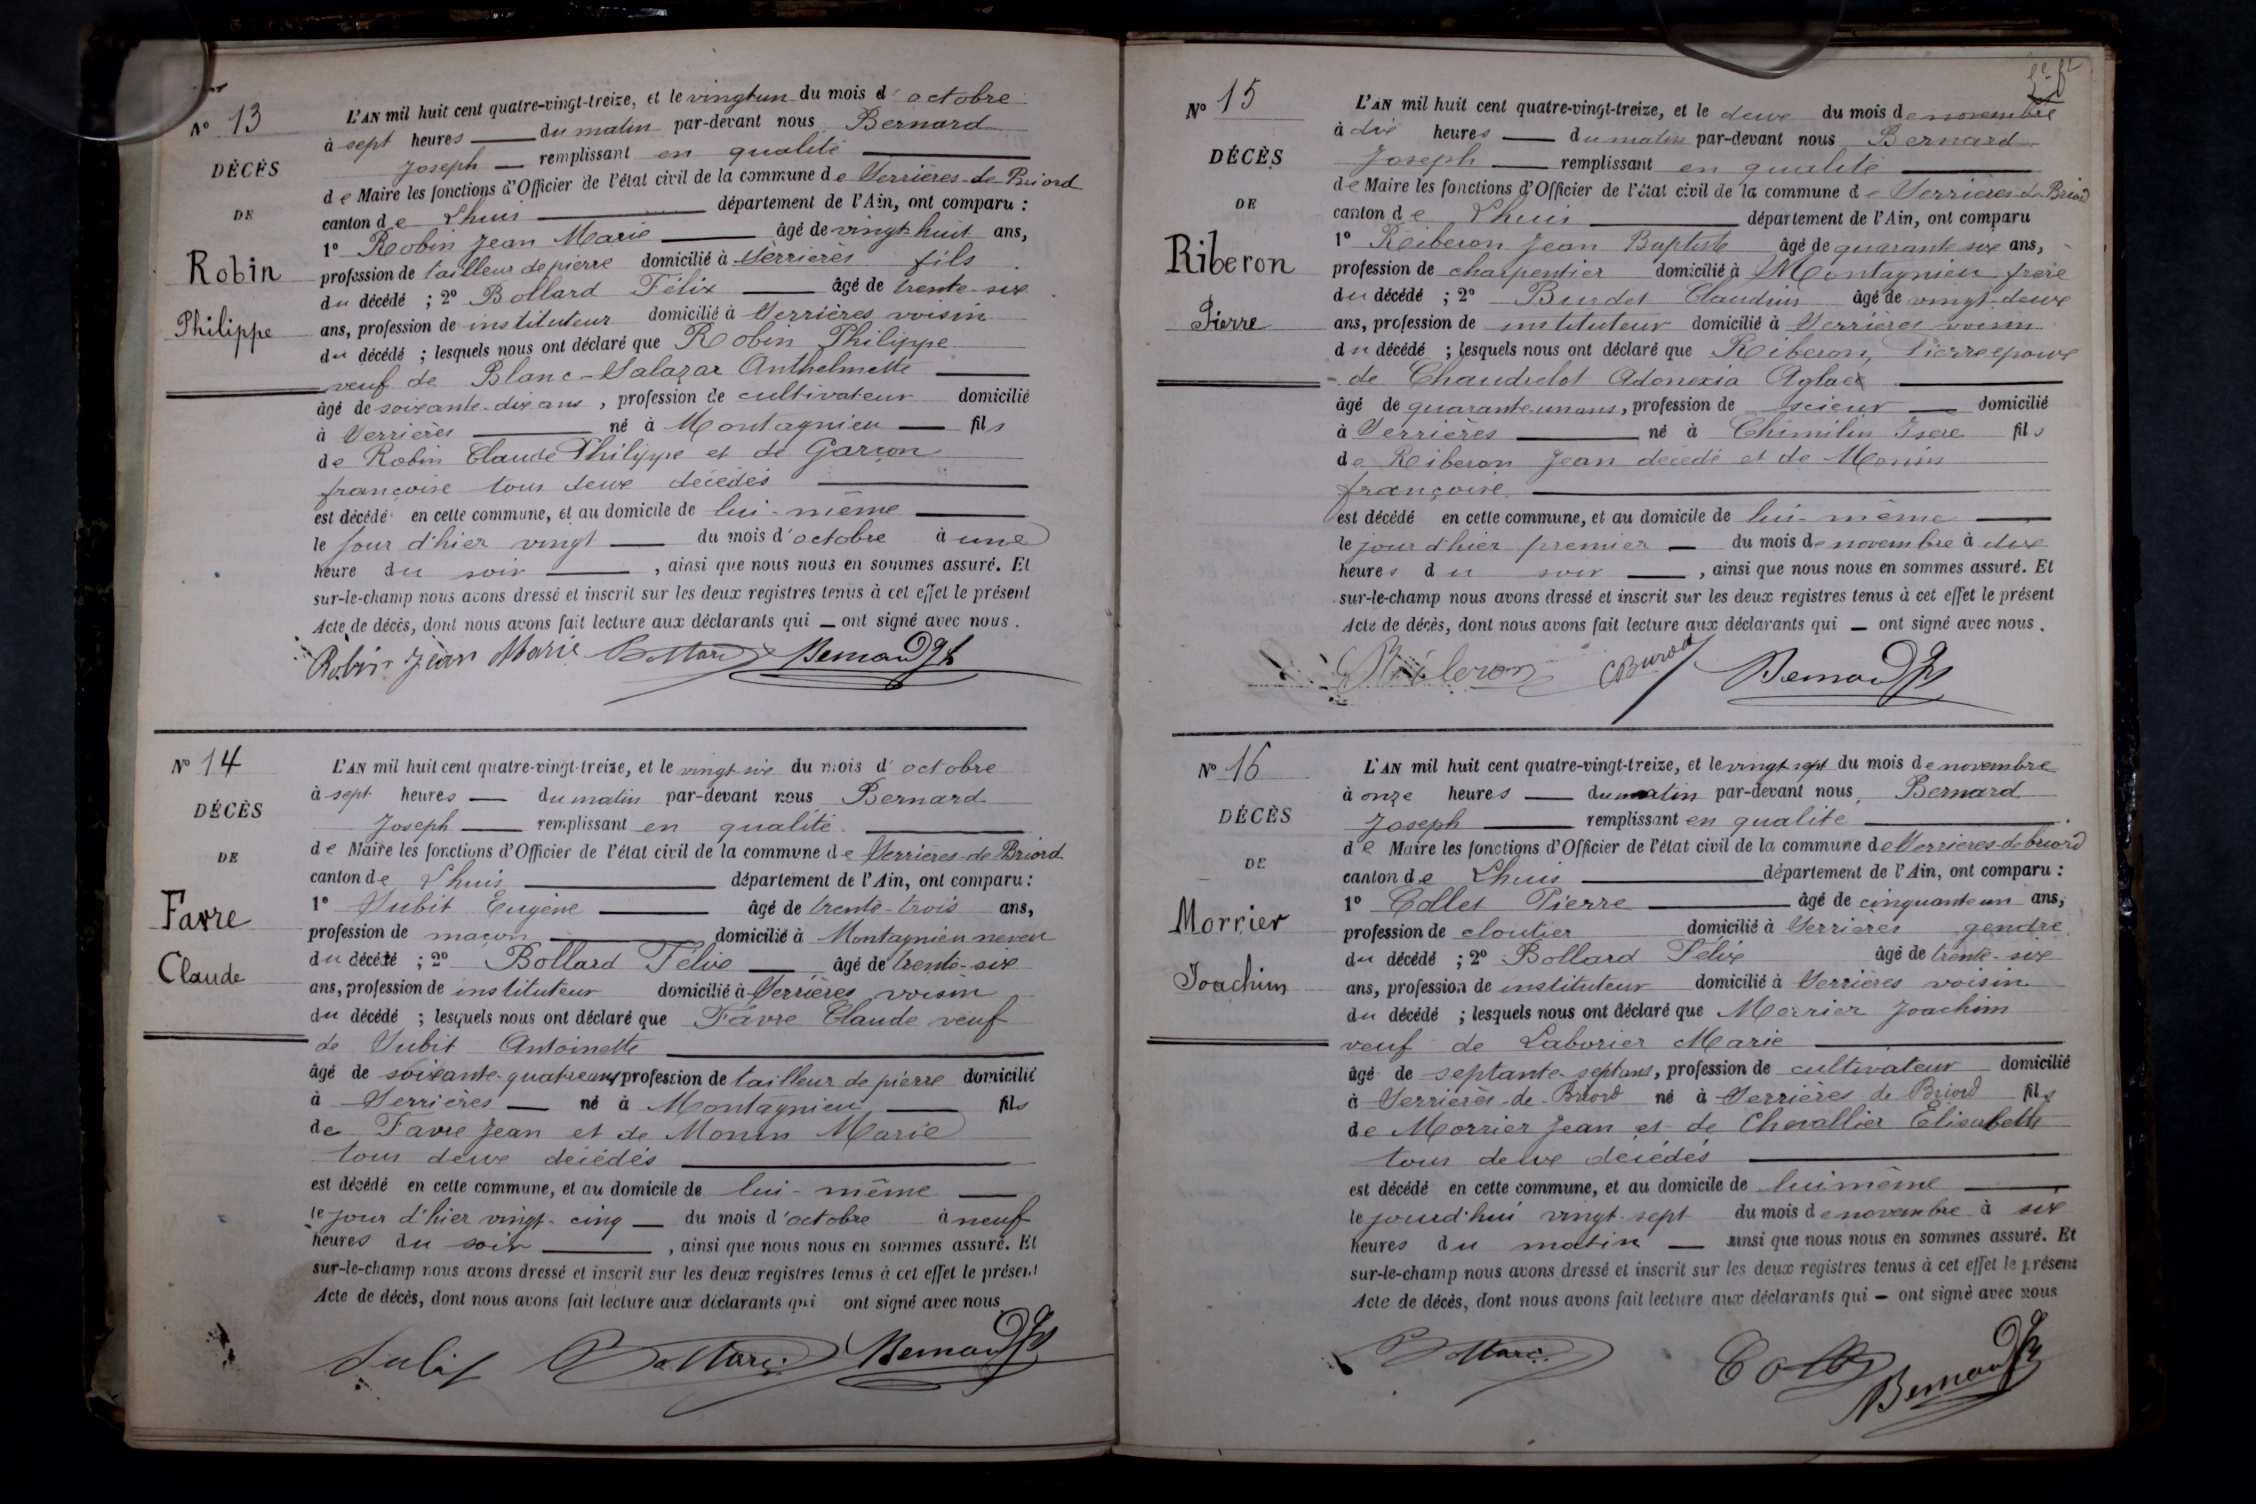 N° 13
DÉCÈS
DE
Robin
Philippe
L'AN mil huit cent quatre-vingt-treize, et le vingtun du mois d'octobre
à sept heures — du matin par-devant nous Bernard
Joseph — remplissant en qualité
de Maire les fonctions d'Officier de l'état civil de la commune de Serrières-de-Briord
canton de Lhuis — département de l'Ain, ont comparu :
1° Robin Jean Marie — âgé de vingt-huit ans,
profession de tailleur de pierre domicilié à Serrières fils
du décédé ; 2° Bollard Félix — âgé de trente-six
ans, profession de instituteur domicilié à Serrières voisin
du décédé ; lesquels nous ont déclaré que Robin Philippe
veuf de Blanc-Salazar Anthelmette
âgé de soixante-dix ans, profession de cultivateur domicilié
à Serrières — né à Montagnieu — fils
de Robin Claude Philippe et de Garçon
françoise tous deux décédés
est décédé en cette commune, et au domicile de lui-même
le jour d'hier vingt — du mois d'octobre à une
heure du soir — , ainsi que nous nous en sommes assuré. Et
sur-le-champ nous avons dressé et inscrit sur les deux registres tenus à cet effet le présent
Acte de décès, dont nous avons fait lecture aux déclarants qui — ont signé avec nous.
Robin Jean Marie Bollard Bernard Jh
N° 14
DÉCÈS
DE
Favre
Claude
L'AN mil huit cent quatre-vingt-treize, et le vingt-six du mois d'octobre
à sept heures — du matin par-devant nous Bernard
Joseph — remplissant en qualité
de Maire les fonctions d'Officier de l'état civil de la commune de Serrières-de-Briord
canton de Lhuis — département de l'Ain, ont comparu :
1° Subit Eugène — âgé de trente-trois ans,
profession de maçon — domicilié à Montagnieu neveu
du décédé ; 2° Bollard Félix — âgé de trente-six
ans, profession de instituteur domicilié à Serrières voisin
du décédé ; lesquels nous ont déclaré que Favre Claude veuf
de Subit Antoinette
âgé de soixante-quatre ans profession de tailleur de pierre domicilié
à Serrières — né à Montagnieu — fils
de Favre Jean et de Monin Marie
tous deux décédés
est décédé en cette commune, et au domicile de lui-même —
le jour d'hier vingt-cinq — du mois d'octobre à neuf
heures du soir — , ainsi que nous nous en sommes assuré. Et
sur-le-champ nous avons dressé et inscrit sur les deux registres tenus à cet effet le présent
Acte de décès, dont nous avons fait lecture aux déclarants qui ont signé avec nous
Subit Bollard Bernard Jh
N° 15
DÉCÈS
DE
Riberon
Pierre
L'AN mil huit cent quatre-vingt-treize, et le deux du mois de novembre
à dix heures — du matin par-devant nous Bernard
Joseph — remplissant en qualité
de Maire les fonctions d'Officier de l'état civil de la commune de Serrières-de-Briord
canton de Lhuis — département de l'Ain, ont comparu
1° Riberon Jean Baptiste âgé de quarante six ans,
profession de charpentier domicilié à Montagnieu frère
du décédé ; 2° Burdet Claudius âgé de vingt-deux
ans, profession de instituteur domicilié à Serrières voisin
du décédé ; lesquels nous ont déclaré que Riberon, Pierre époux
de Chaudrelot Adonexia Aglaé
âgé de quarante un ans, profession de scieur — domicilié
à Serrières — né à Chimilin Isère fils
de Riberon Jean décédé et de Monin
françoise
est décédé en cette commune, et au domicile de lui-même —
le jour d'hier premier — du mois de novembre à dix
heures du soir — , ainsi que nous nous en sommes assuré. Et
sur-le-champ nous avons dressé et inscrit sur les deux registres tenus à cet effet le présent
Acte de décès, dont nous avons fait lecture aux déclarants qui — ont signé avec nous.
Riberon CBurdet Bernard Jh
N° 16
DÉCÈS
DE
Morrier
Joachim
L'AN mil huit cent quatre-vingt-treize, et le vingt sept du mois de novembre
à onze heures — du matin par-devant nous, Bernard
Joseph — remplissant en qualité
de Maire les fonctions d'Officier de l'état civil de la commune de Serrières-de-briord
canton de Lhuis — département de l'Ain, ont comparu :
1° Collet Pierre — âgé de cinquante un ans,
profession de cloutier domicilié à Serrières gendre
du décédé ; 2° Bollard Félix âgé de trente-six
ans, profession de instituteur domicilié à Serrières voisin
du décédé ; lesquels nous ont déclaré que Morrier Joachim
veuf de Laborier Marie
âgé de septante-sept ans, profession de cultivateur domicilié
à Serrières-de-Briord né à Serrières de Briord fils
de Morrier Jean et de Chevallier Elisabeth
tous deux décédés
est décédé en cette commune, et au domicile de lui même
le jourd'hui vingt-sept du mois de novembre à six
heures du matin — ainsi que nous nous en sommes assuré. Et
sur-le-champ nous avons dressé et inscrit sur les deux registres tenus à cet effet le présent
Acte de décès, dont nous avons fait lecture aux déclarants qui — ont signé avec nous
Bollard Collet Bernard Jh